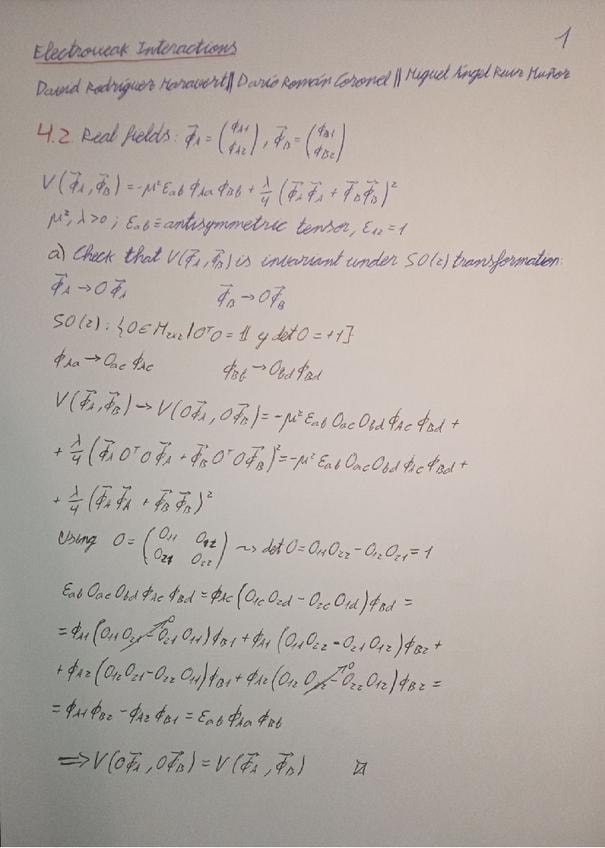 Electroweak Interactions 1
David Rodríguez || Darío Román Coronel || Miguel Ángel Ruiz Muñoz
4.2. Real fields: Φ⃗_A = (ϕ_A1 ϕ_A2), Φ⃗_B = (ϕ_B1 ϕ_B2)
V(Φ⃗_A, Φ⃗_B) = -μ² ε_ab ϕ_Aa ϕ_Bb + λ/4 (Φ⃗_A Φ⃗_A + Φ⃗_B Φ⃗_B)²
μ², λ > 0 ; ε_ab ≡ antisymmetric tensor, ε_12 = 1
a) Check that V(Φ⃗_A, Φ⃗_B) is invariant under SO(2) transformation:
Φ⃗_A → O Φ⃗_A Φ⃗_B → O Φ⃗_B
SO(2): {O ∈ M_2x2 / OᵀO = 𝟙 y det O = +1}
ϕ_Aa → O_ac ϕ_Ac ϕ_Bb → O_bd ϕ_Bd
V(Φ⃗_A, Φ⃗_B) → V(OΦ⃗_A, OΦ⃗_B) = -μ² ε_ab O_ac O_bd ϕ_Ac ϕ_Bd +
+ λ/4 (Φ⃗_A OᵀO Φ⃗_A + Φ⃗_B OᵀO Φ⃗_B)² = -μ² ε_ab O_ac O_bd ϕ_Ac ϕ_Bd +
+ λ/4 (Φ⃗_A Φ⃗_A + Φ⃗_B Φ⃗_B)²
Using O = (O_11 O_12 O_21 O_22) ⇝ det O = O_11 O_22 - O_12 O_21 = 1
ε_ab O_ac O_bd ϕ_Ac ϕ_Bd = ϕ_Ac (O_1c O_2d - O_2c O_1d) ϕ_Bd =
= ϕ_A1 (O_11 O_21 - O_21 O_11)⁰ ϕ_B1 + ϕ_A1 (O_11 O_22 - O_21 O_12) ϕ_B2 +
+ ϕ_A2 (O_12 O_21 - O_22 O_11) ϕ_B1 + ϕ_A2 (O_12 O_22 - O_22 O_12)⁰ ϕ_B2 =
= ϕ_A1 ϕ_B2 - ϕ_A2 ϕ_B1 = ε_ab ϕ_Aa ϕ_Bb
⟹ V(OΦ⃗_A, OΦ⃗_B) = V(Φ⃗_A, Φ⃗_B)